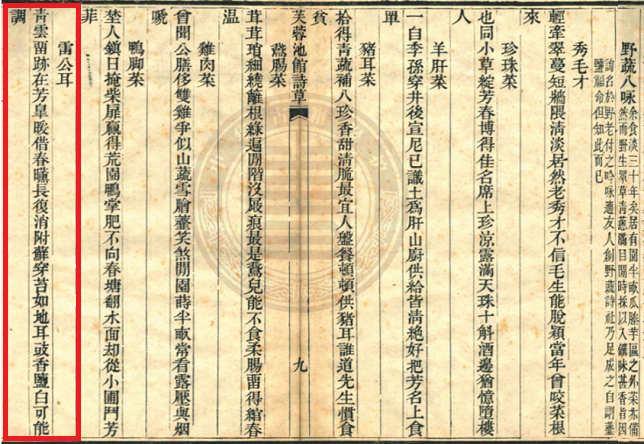 野蔬八咏 余食淡三十年矣居有園半畝瓜藤芋區之外菜亦備
然而野生翠草青蔥滿目閒時採以入饌味甚香者因
論名於野老付之吟咏適友人創野蔬詩社乃足成之自謂虀
鹽福命但知此而已
秀毛才
輕牽翠蔓短牆隈清淡居然老秀才不信毛生能脫穎當年曾咬菜根
來
珍珠菜
也同小草綻芳春博得佳名席上珍涼露滿天珠十斛酒邊猶憶墮樓
人
羊肝菜
一自李孫穿井後宣尼已識土爲肝山廚供給皆清絶好把芳名上食
單
豬耳菜
拾得青蔬補八珍香甜清脆最宜人盤餐頓頓供豬耳誰道先生慣食
貧
芙蓉池館詩草 九
鷰腸菜
茸茸瑣細繞籬根綠遍閒階沒屐痕最是鷰兒能不食柔腸留得綰春
温
雞肉菜
曾聞公膳侈雙雞爭似山蔬雪膾虀笑煞閒園蒔半畝常看露壓與烟
嗁
鴨脚菜
埜人鎮日掩柴扉贏得荒園鴨掌肥不向春塘翻水面却從小圃鬥芳
菲
雷公耳
青雲留跡在芳皐暖借春曦長復消附蘚穿苔如地耳豉香鹽白可能
調